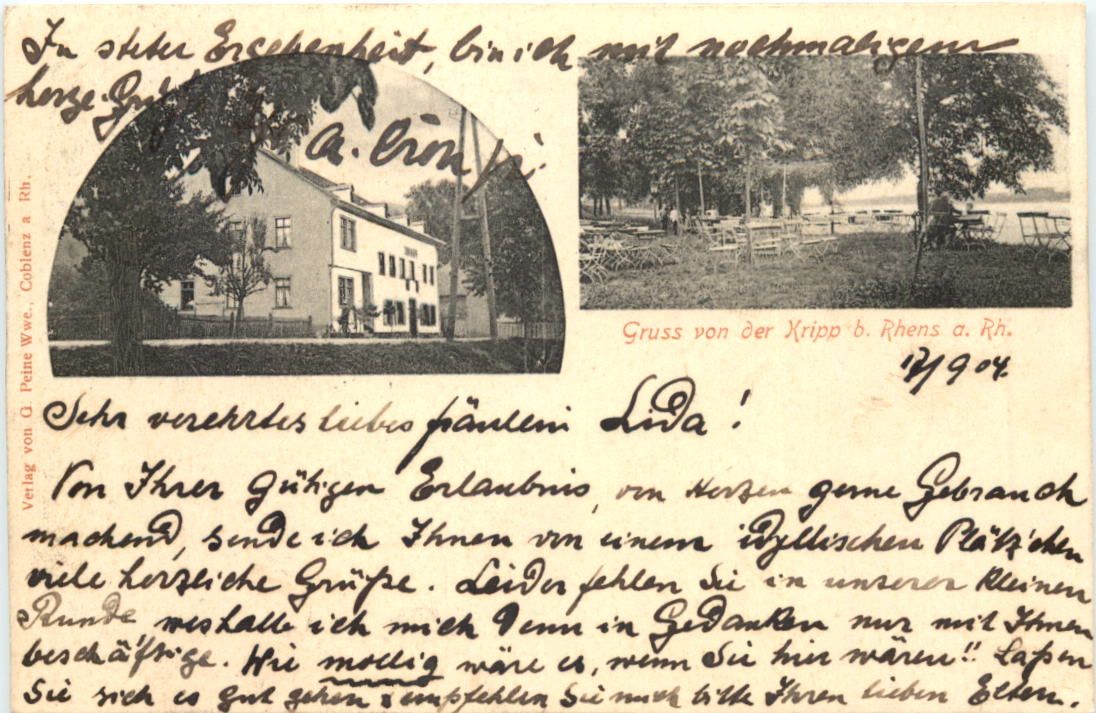 In steter Ergebenheit, bin ich mit nochmaligem
herzl. Gruß
A.
Gruss von der Kripp b. Rhens a. Rh.
17/9 04.
Verlag von G. Peine Wwe., Coblenz a Rh.
Sehr verehrtes liebes Fräulein Lida!
Von Ihrer gütigen Erlaubnis, von Herzen gerne Gebrauch
machend, sende ich Ihnen von einem idyllischen Plätz'chen
viele herzliche Grüße. Leider fehlen Sie in unserer kleinen
Runde weshalb ich mich denn in Gedanken nur mit Ihnen
beschäftige. Wie mollig wäre es, wenn Sie hier wären!! Laßen
Sie sich es gut gehen & empfehlen Sie mich bitte Ihren lieben Eltern.